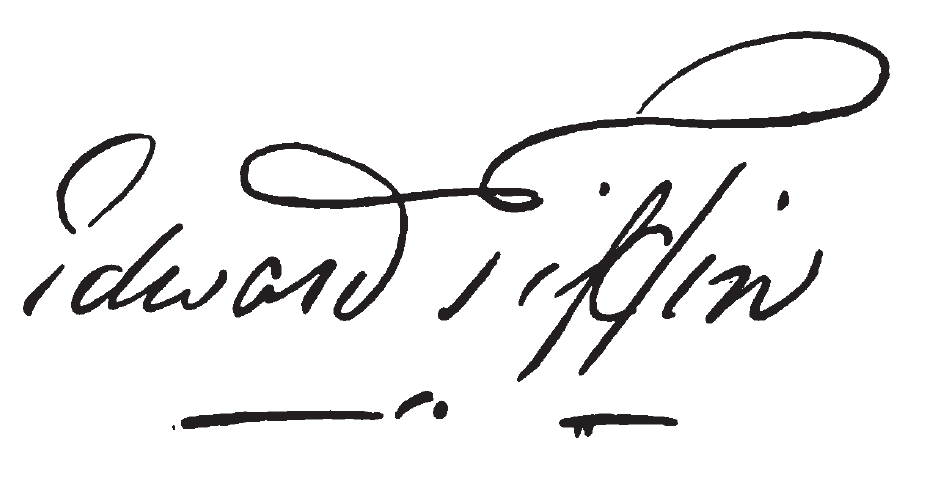 Edward Tiffin